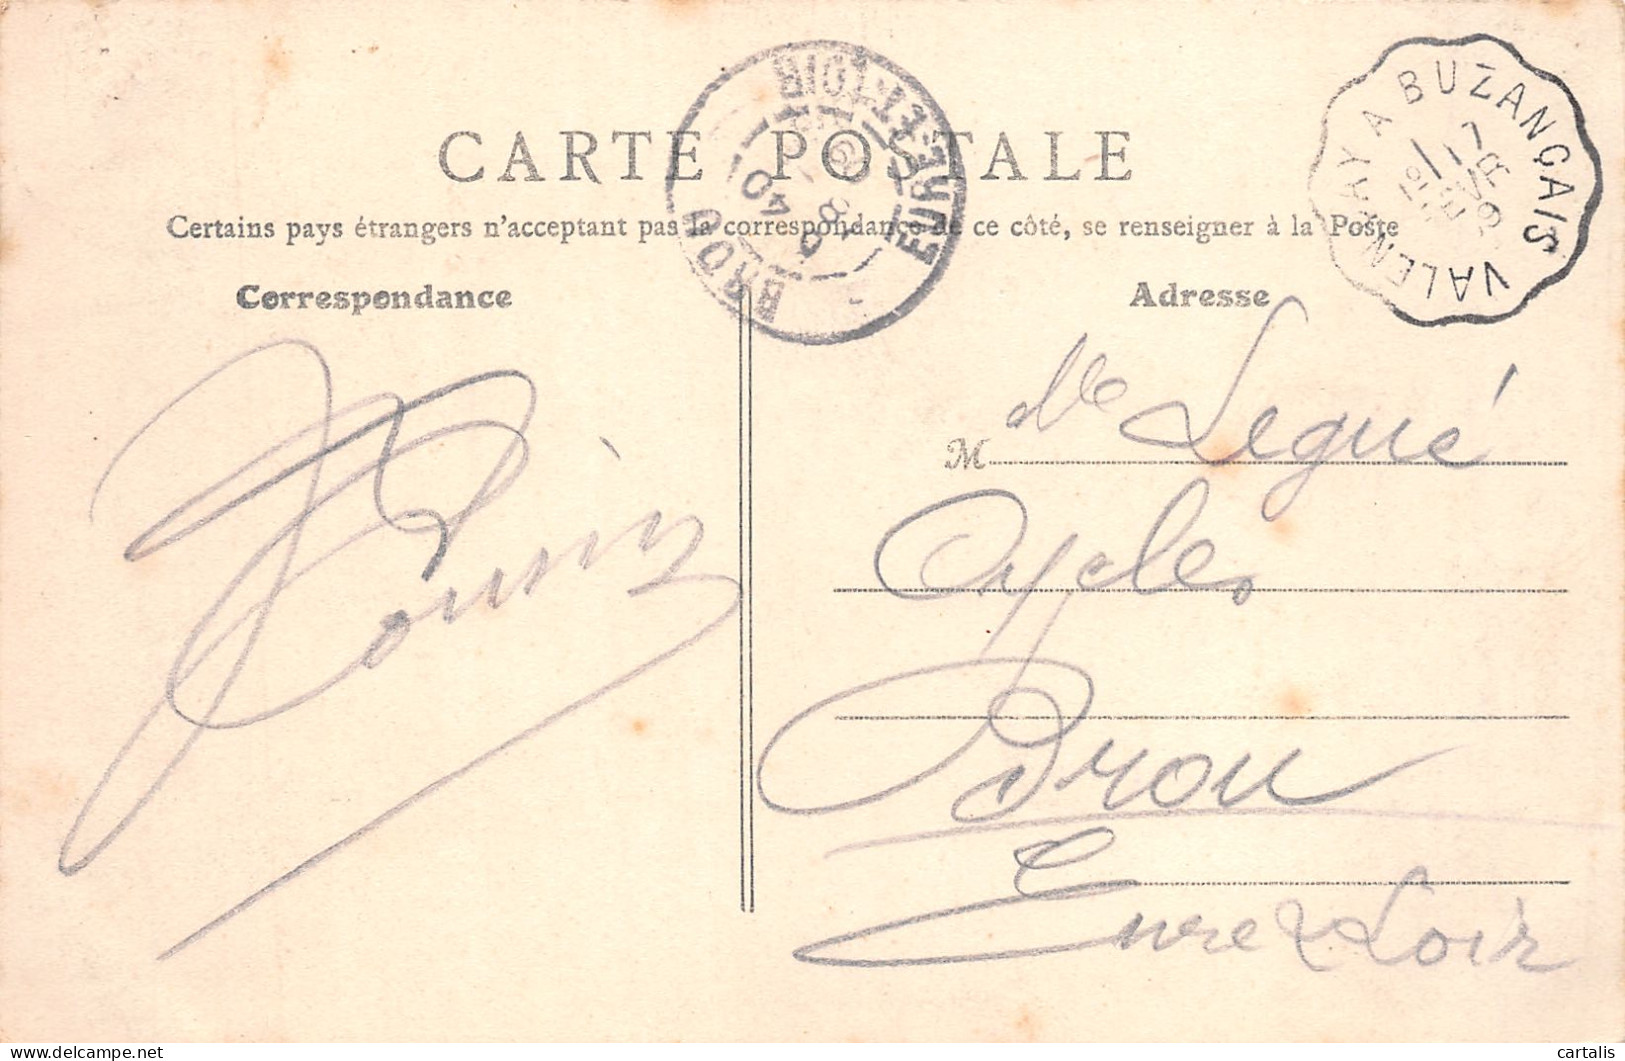 CARTE POSTALE
Certains pays étrangers n'acceptant pas la correspondance de ce côté, se renseigner à la Poste
Correspondance
Adresse
BROU
EURE-ET-LOIR
VALENÇAY A BUZANÇAIS
M lle Legué
Cycles
Brou
Eure & Loir
cartalis